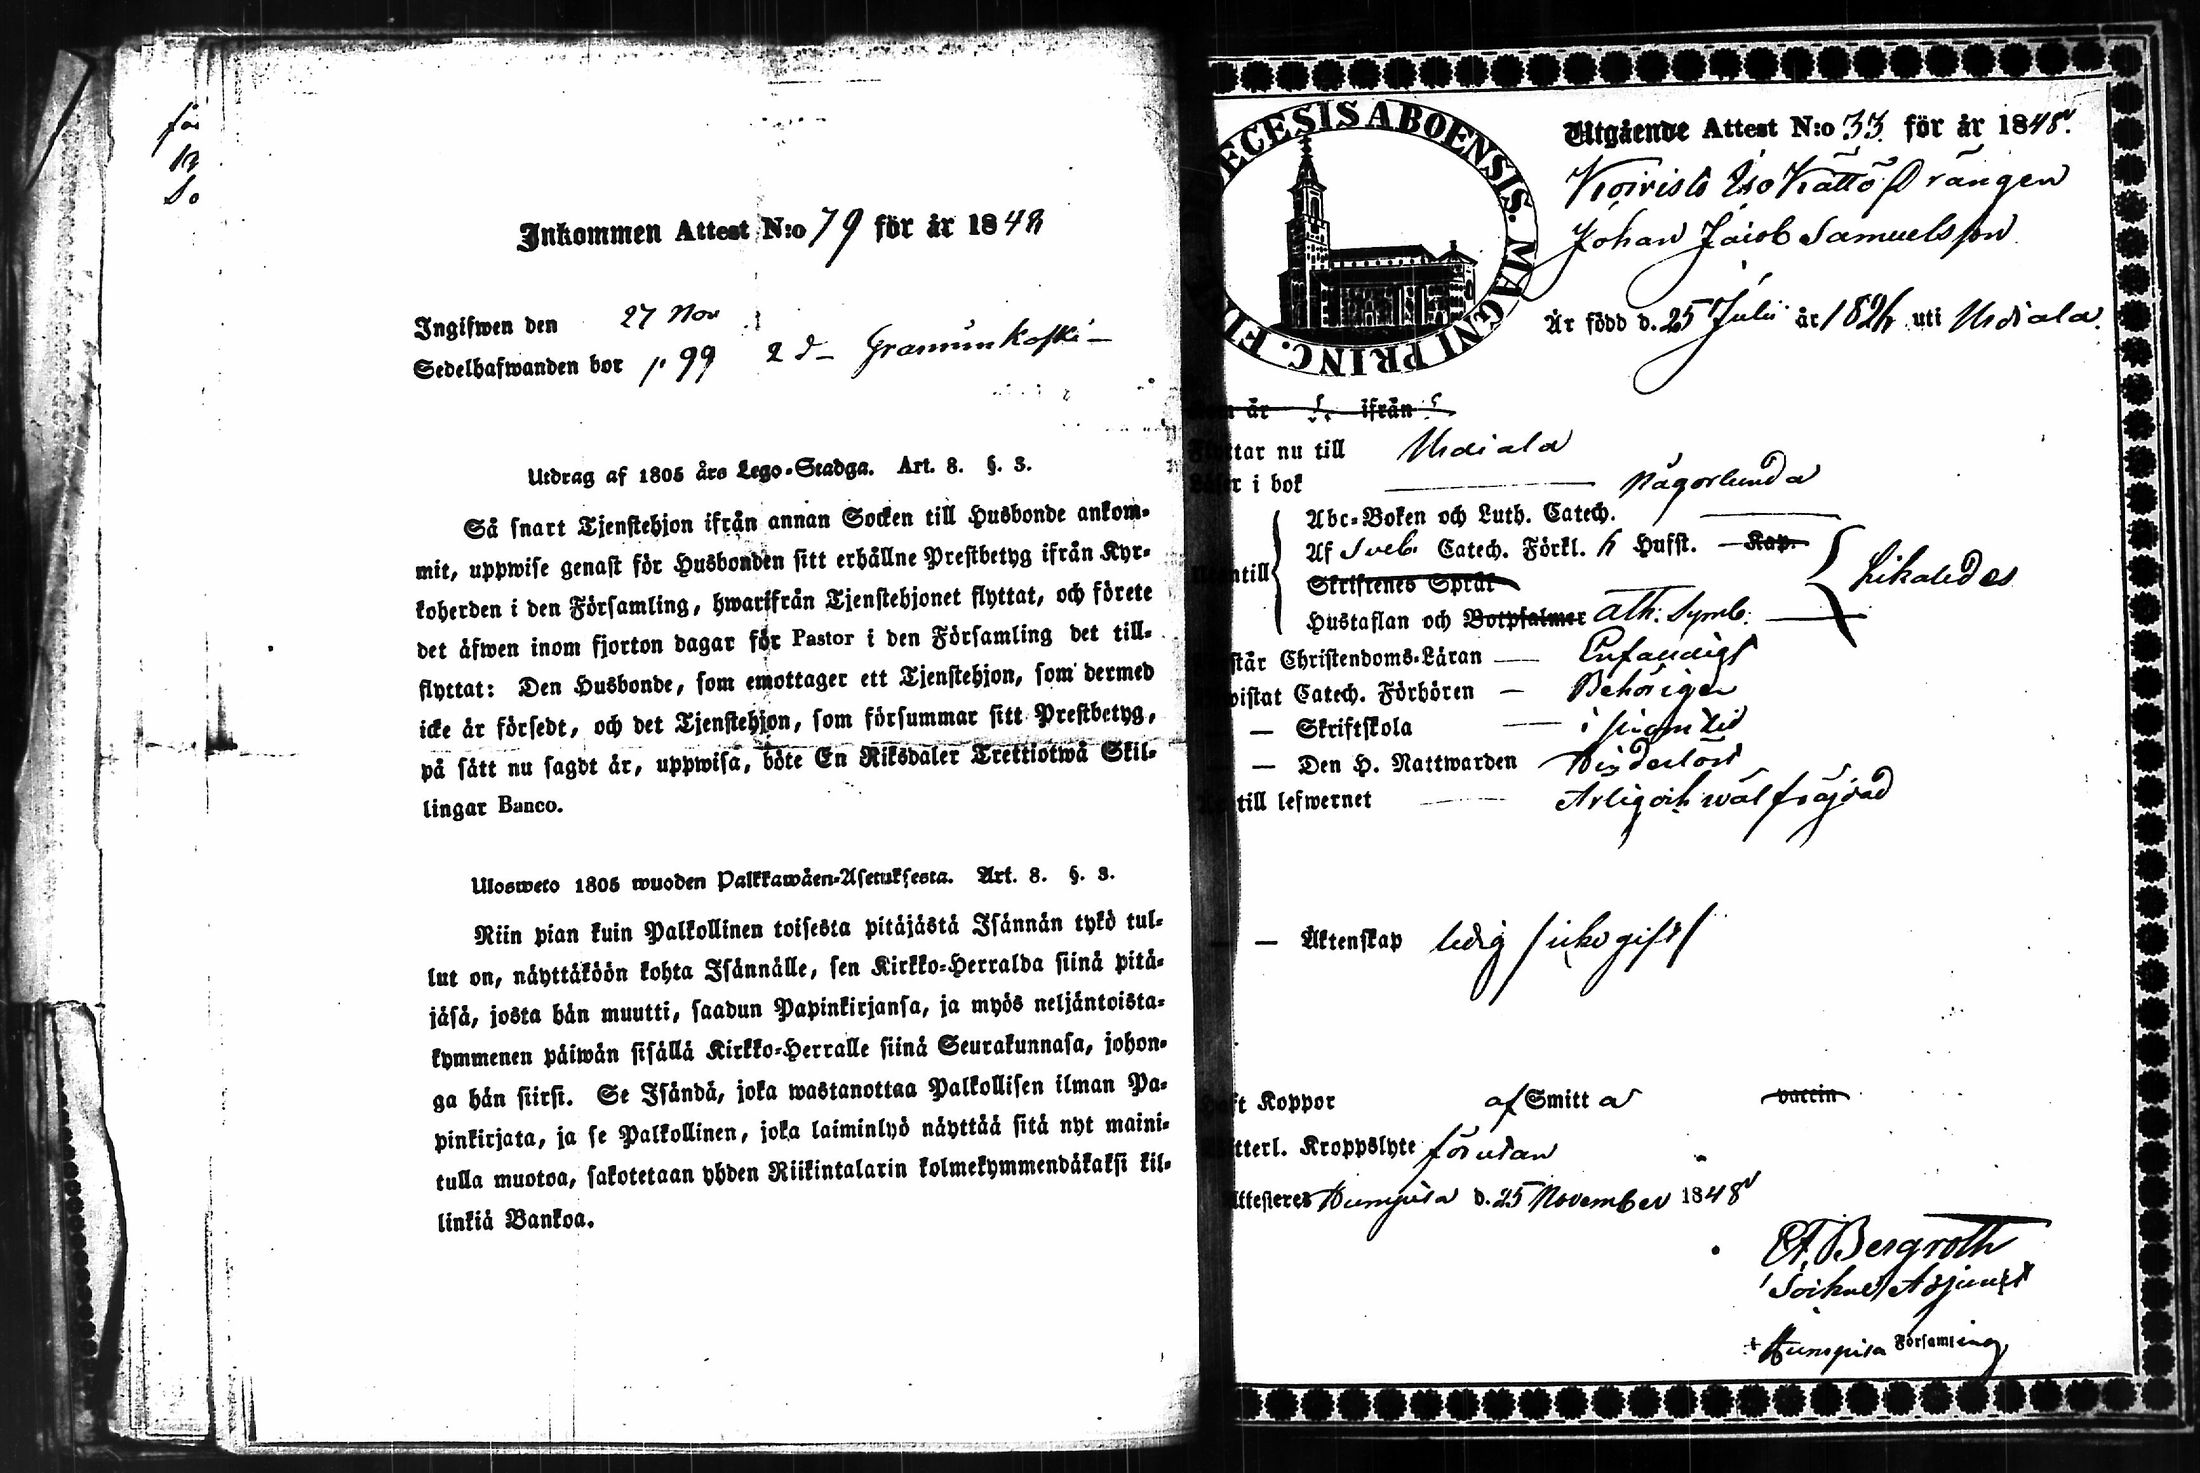 Inkommen Attest N:o 79 för år 1848
Ingifwen den 27 Nov
Sedelhafwanden bor p. 99
Utdrag af 1805 års Lego-Stadga. Art. 8. §. 3.
Så snart Tjenstehjon ifrån annan Socken till Husbonde ankom-
mit, uppwise genast för Husbonden sitt erhållne Prestbetyg ifrån Kyr-
koherden i den Församling, hwarifrån Tjenstehjonet flyttat, och förete
det äfwen inom fjorton dagar för Pastor i den Församling det till-
flyttat: Den Husbonde, som emottager ett Tjenstehjon, som dermed
icke är försedt, och det Tjenstehjon, som försummar sitt Prestbetyg,
på sätt nu sagdt är, uppwisa, böte En Riksdaler Trettiotwå Skil-
lingar Banco.
Ulosweto 1805 wuoden Palkkawäen-Asetuksesta. Art. 8. §. 3.
Niin pian kuin Palkollinen toisesta pitäjästä Isännän tykö tul-
lut on, näyttäköön kohta Isännälle, sen Kirkko-Herralda siinä pitä-
jäsä, josta hän muutti, saadun Papinkirjansa, ja myös neljäntoista-
kymmenen päiwän sisällä Kirkko-Herralle siinä Seurakunnasa, johon-
ga hän siirsi. Se Isändä, joka wastanottaa Palkollisen ilman Pa-
pinkirjata, ja se Palkollinen, joka laiminlyö näyttää sitä nyt maini-
tulla muotoa, sakotetaan yhden Riikintalarin kolmekymmendäkaksi kil-
linkiä Bankoa.
ECESIS ABOENSIS. MAGNI PRINC. FI
Utgående Attest N:o 33 för år 1848.
Koivisto Iso Kättö Drängen
Johan Jacob Samuelsson
Är född d. 25 Julii år 1826 uti Urdiala.
är ifrån
Flyttar nu till Urdiala
Läser i bok någorlunda
Abc-Boken och Luth. Catech.
Af Sveb. Catech. Förkl. Husst. Kap.
Skriftenes Språk
Hustaflan och Botpsalmer Ath. Symb. Likaledes
står Christendoms-Läran Enfaldigt
vistat Catech. Förhören Behörigen
— Skriftskola i sinom tid
— Den H. Nattwarden
till lefwernet Ärlig och wälfräjdad
— Äktenskap ledig /icke gift/
Haft Koppor af Smitta vaccin
Kroppslyte förutan
Attesteres Kumpila d. 25 November 1848
Bergroth
Sockne Adjunct
i Församling